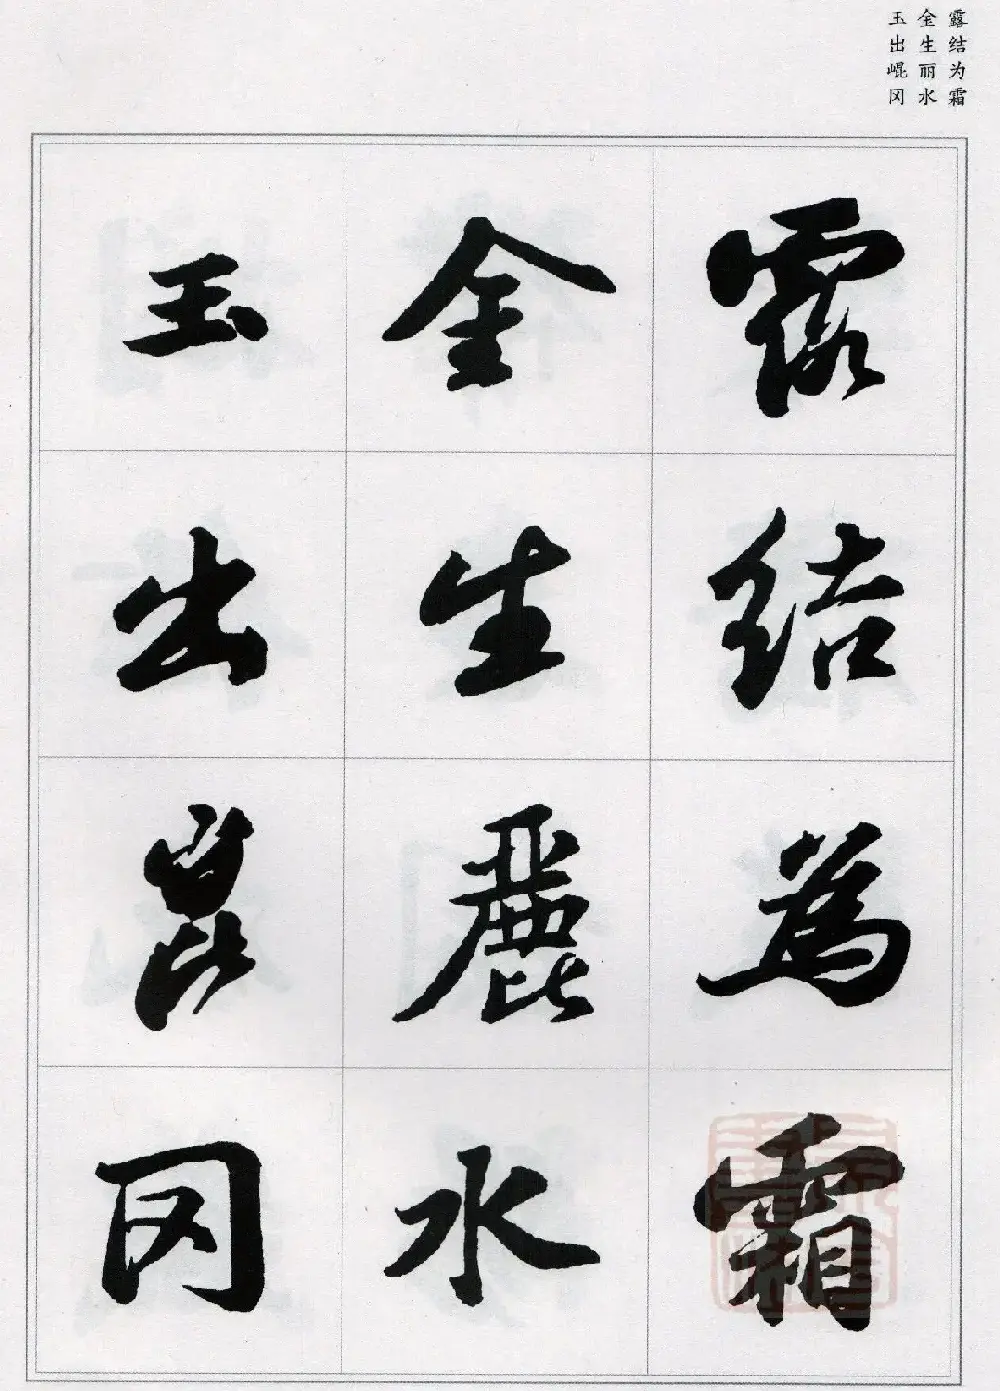 露结为霜
金生丽水
玉出崐冈
露结為霜
金生麗水
玉出崑冈